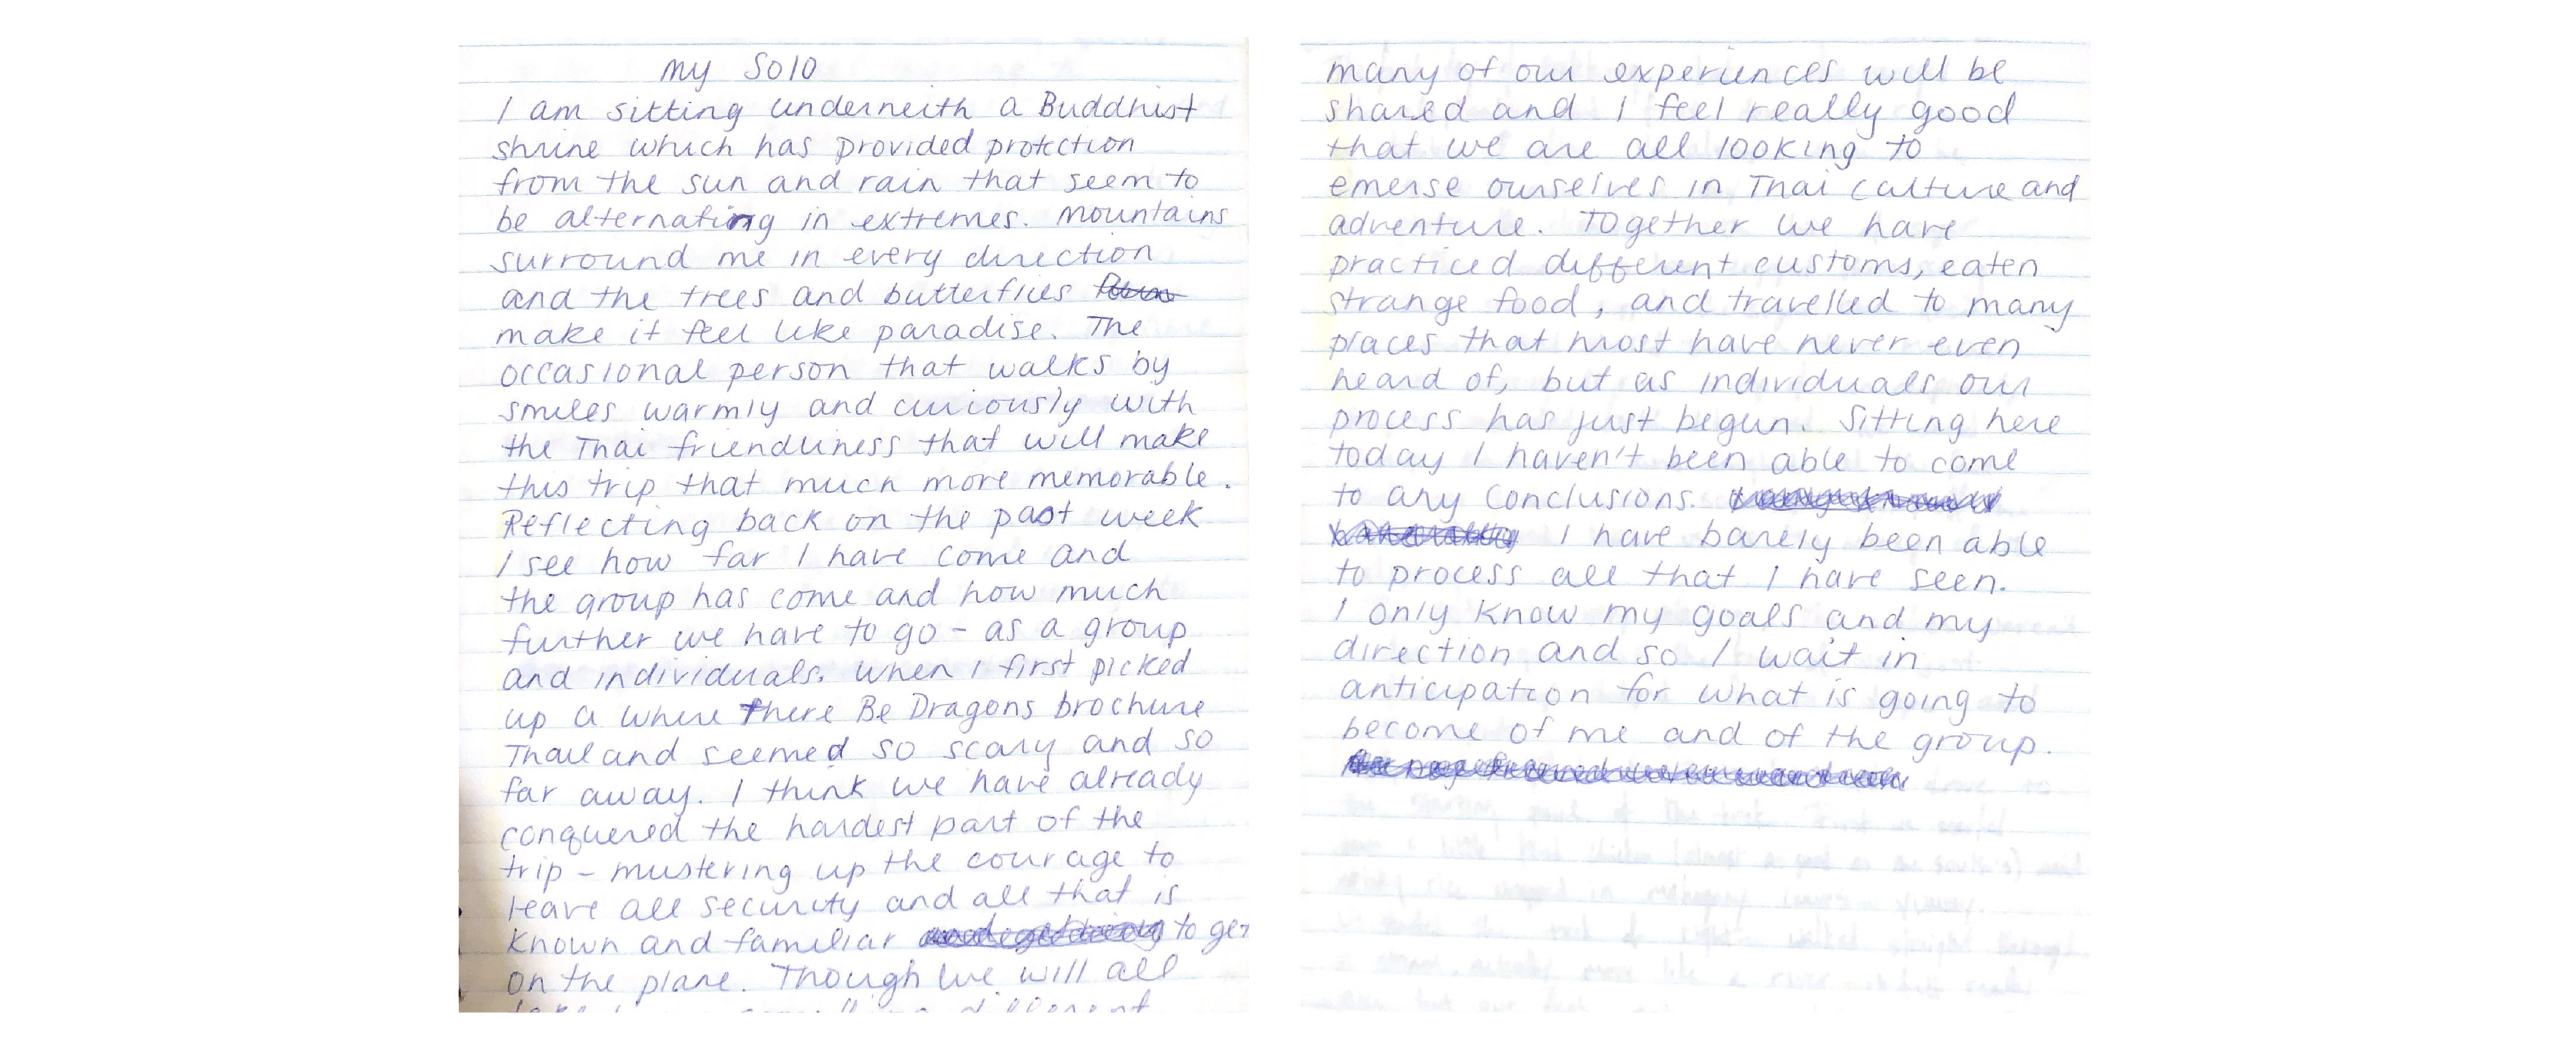 My Solo
I am sitting underneith a Buddhist
shrine which has provided protection
from the sun and rain that seem to
be alternating in extremes. Mountains
surround me in every direction
and the trees and butterflies
make it feel like paradise. The
occasional person that walks by
smiles warmly and curiously with
the Thai friendliness that will make
this trip that much more memorable.
Reflecting back on the past week
I see how far I have come and
the group has come and how much
further we have to go - as a group
and individuals. When I first picked
up a Where There Be Dragons brochure
Thailand seemed so scary and so
far away. I think we have already
conquered the hardest part of the
trip - mustering up the courage to
leave all security and all that is
known and familiar to get
on the plane. Though we will all
different
many of our experiences will be
shared and I feel really good
that we are all looking to
emerse ourselves in Thai culture and
adventure. Together we have
practiced different customs, eaten
strange food, and travelled to many
places that most have never even
heard of, but as individuals our
process has just begun. Sitting here
today I haven't been able to come
to any conclusions.
I have barely been able
to process all that I have seen.
I only know my goals and my
direction and so I wait in
anticipation for what is going to
become of me and of the group.